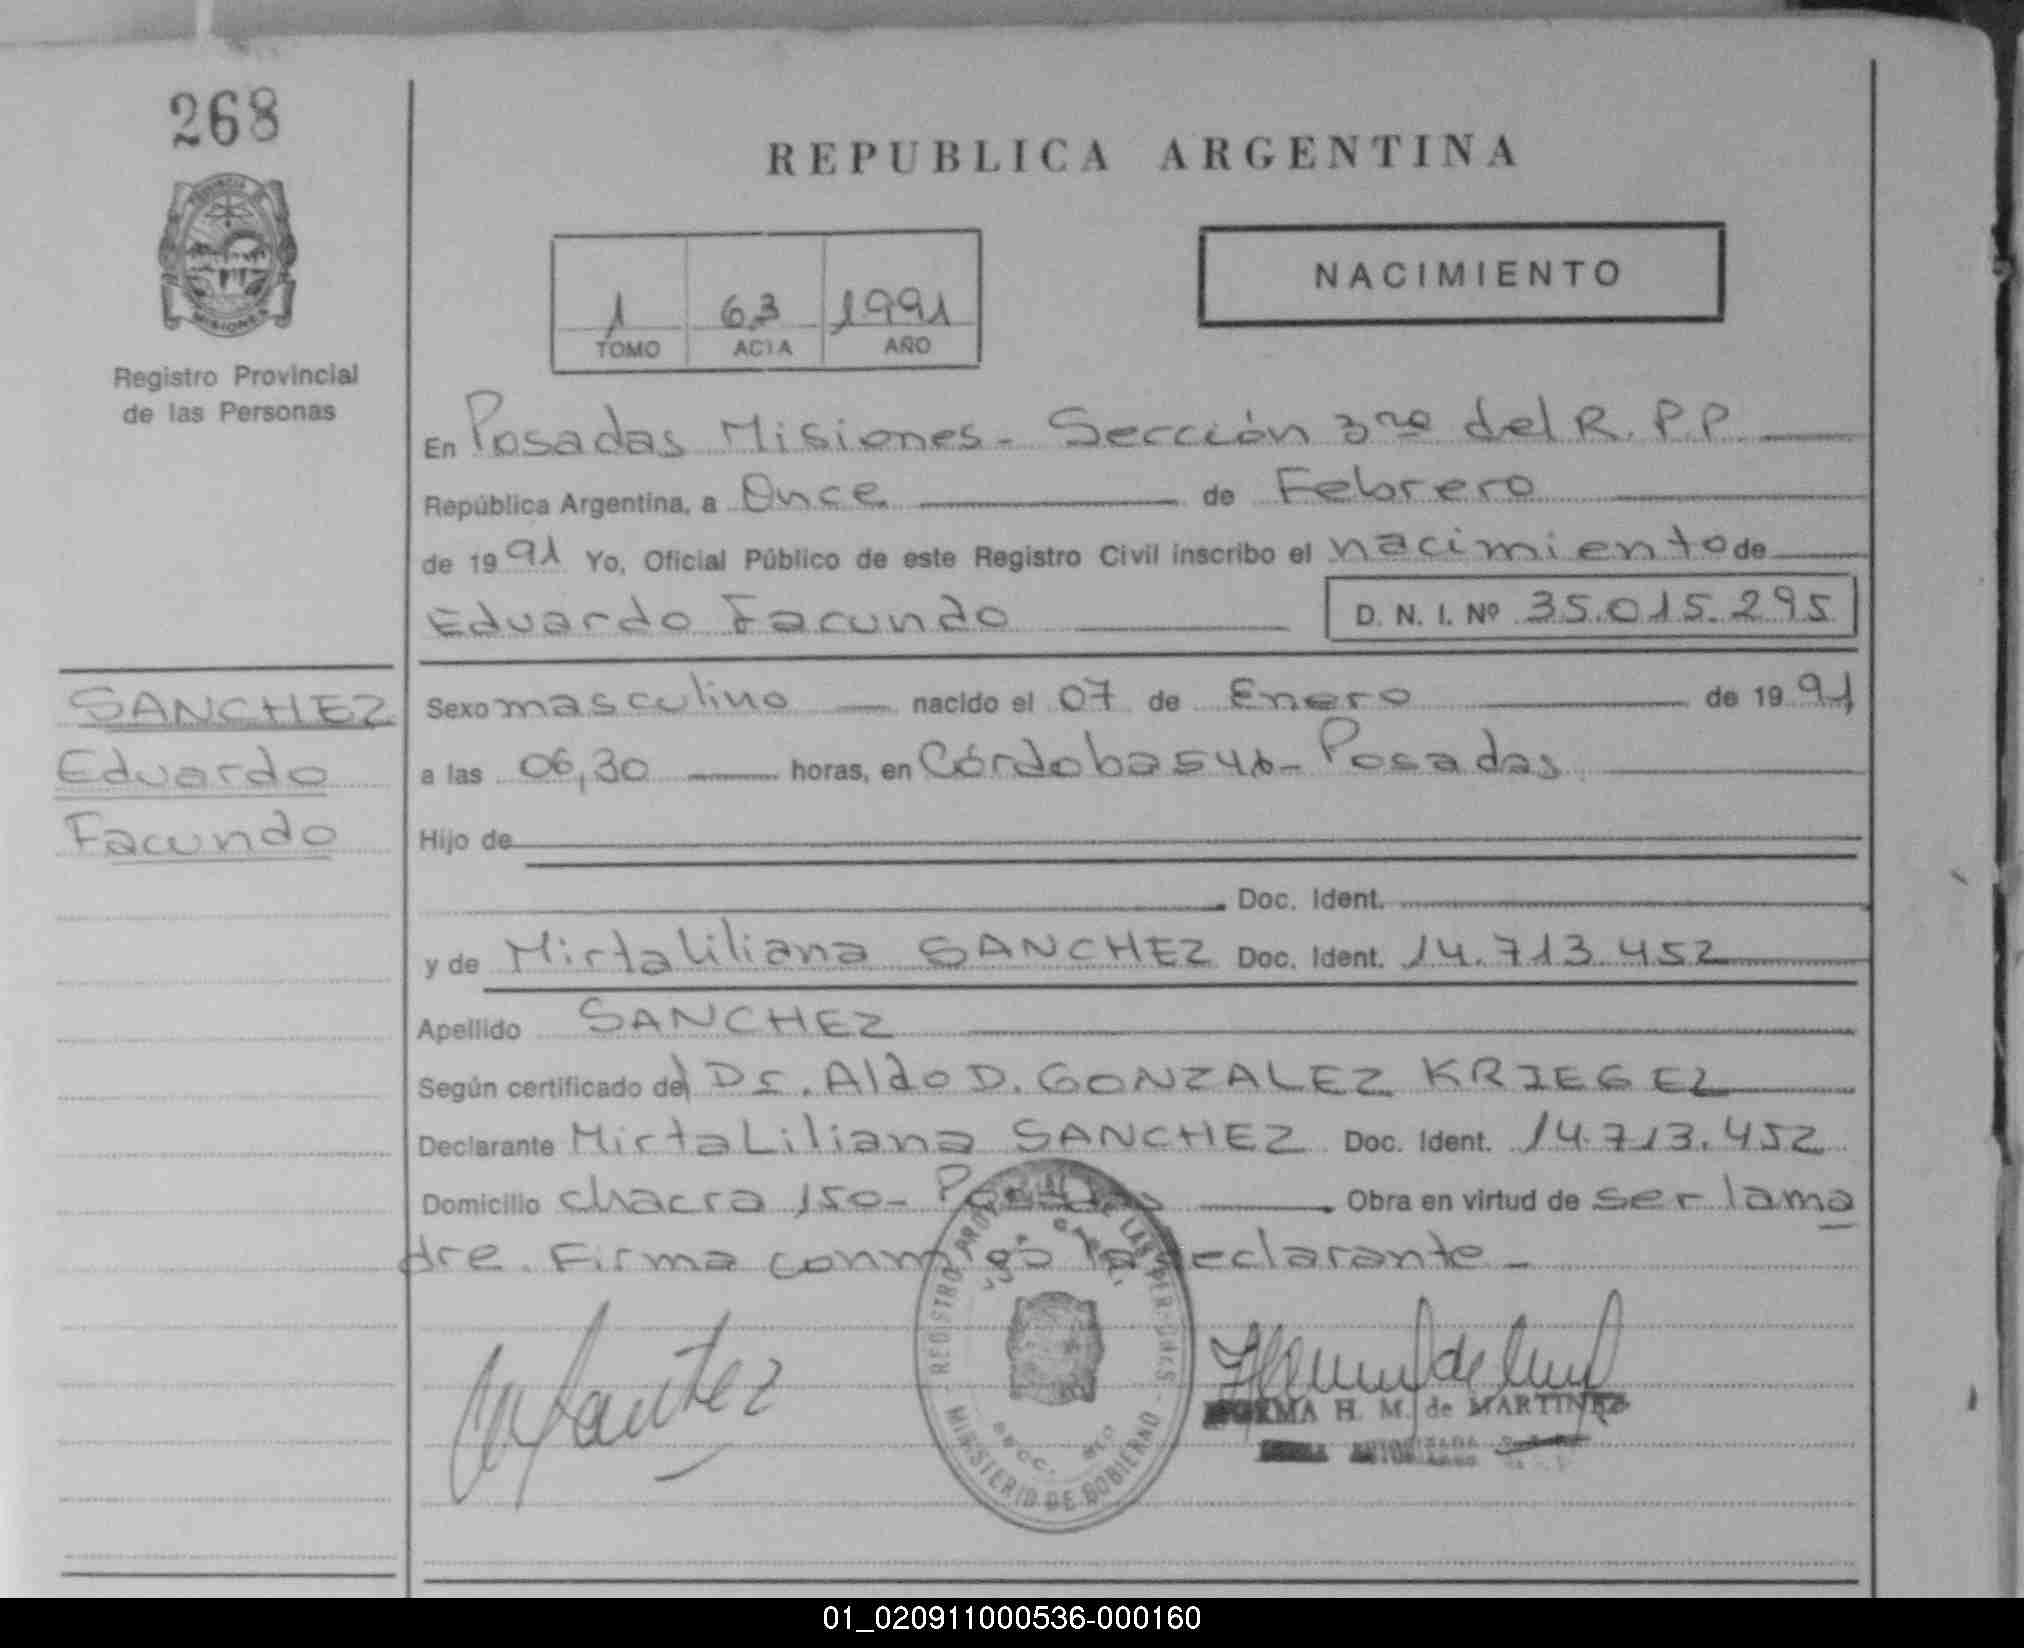 268
REPUBLICA ARGENTINA
NACIMIENTO
1 63 1991
TOMO ACTA AÑO
MISIONES
Registro Provincial
de las Personas
En Posadas Misiones - Sección 3ra del R.P.P.
República Argentina, a Once de Febrero
de 1991 Yo, Oficial Público de este Registro Civil inscribo el nacimiento de
Eduardo Facundo D. N. I. Nº 35.015.295
SANCHEZ
Eduardo
Facundo
Sexo masculino nacido el 07 de Enero de 1991
a las 06,30 horas, en Córdoba 546 - Posadas
Hijo de
Doc. Ident.
y de Mirta Liliana SANCHEZ Doc. Ident. 14.713.452
Apellido SANCHEZ
Según certificado del Dr. Aldo D. GONZALEZ KRIEGEL
Declarante Mirta Liliana SANCHEZ Doc. Ident. 14.713.452
Domicilio chacra 150 - Posadas Obra en virtud de ser la ma
dre. Firma conmigo la declarante -
REGISTRO PROVINCIAL DE LAS PERSONAS
MINISTERIO DE GOBIERNO
H. M. de MARTINEZ
01_020911000536-000160